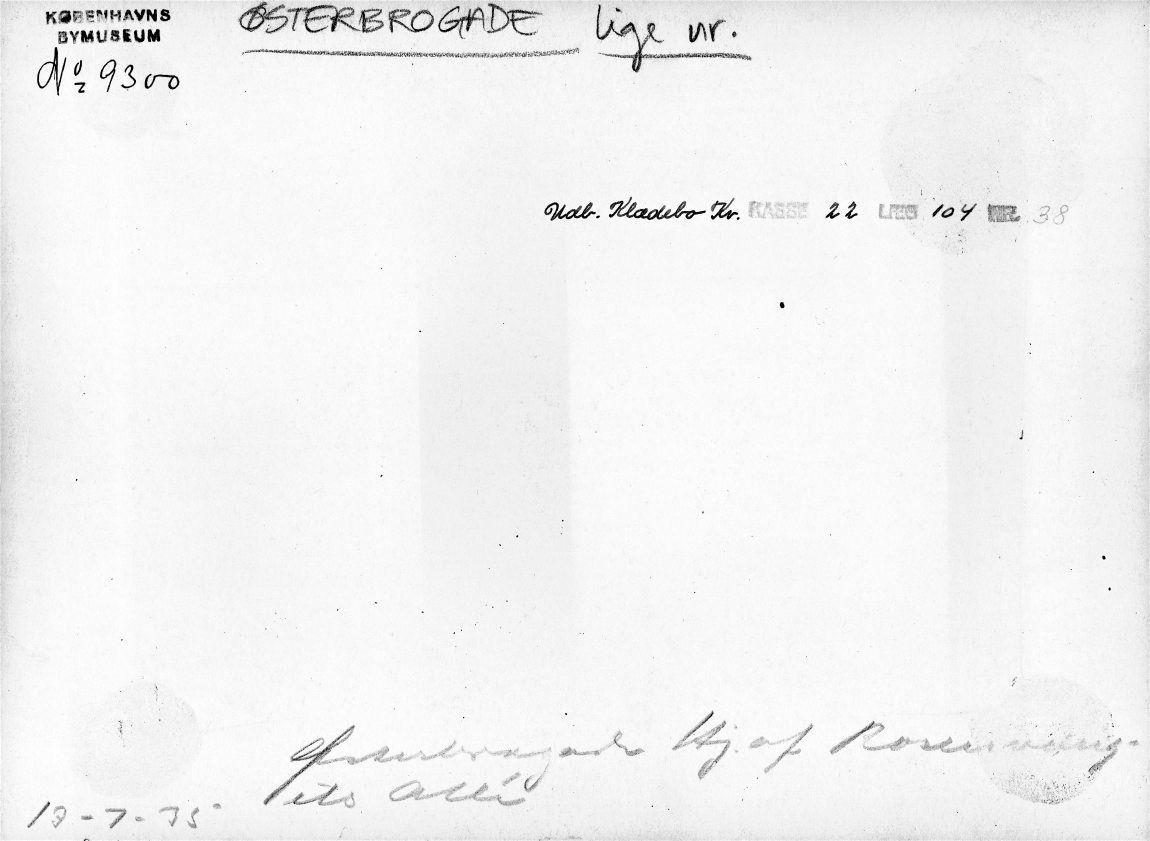 KØBENHAVNS
BYMUSEUM
No 9300
ØSTERBROGADE lige nr.
Udb. Klædebo Kv. KASSE 22 LÆG 104 NR. 38
Østerbrogade Hj. af Rosenvæng-
ets Allé
13-7-35